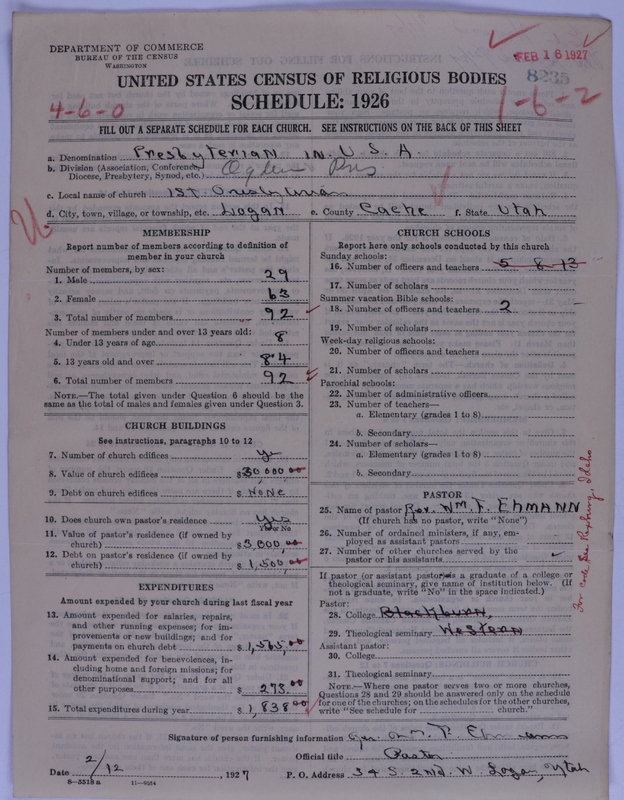 DEPARTMENT OF COMMERCE
BUREAU OF THE CENSUS
WASHINGTON
FEB 16 1927
8235
UNITED STATES CENSUS OF RELIGIOUS BODIES
SCHEDULE: 1926
4-6-0
1-6-2
FILL OUT A SEPARATE SCHEDULE FOR EACH CHURCH. SEE INSTRUCTIONS ON THE BACK OF THIS SHEET
a. Denomination Presbyterian in U.S.A
b. Division (Association, Conference, Diocese, Presbytery, Synod, etc.) Ogden Pres
c. Local name of church 1st Presbyterian
d. City, town, village, or township, etc. Logan e. County Cache f. State Utah
MEMBERSHIP
Report number of members according to definition of
member in your church
Number of members, by sex:
1. Male 29
2. Female 63
3. Total number of members 92
Number of members under and over 13 years old:
4. Under 13 years of age 8
5. 13 years old and over 84
6. Total number of members 92
NOTE.—The total given under Question 6 should be the
same as the total of males and females given under Question 3.
CHURCH BUILDINGS
See instructions, paragraphs 10 to 12
7. Number of church edifices
8. Value of church edifices $30,000.00
9. Debt on church edifices $ None
10. Does church own pastor's residence Yes
Yes or No
11. Value of pastor's residence (if owned by
church) $3,000.00
12. Debt on pastor's residence (if owned by
church) $1,500.00
EXPENDITURES
Amount expended by your church during last fiscal year
13. Amount expended for salaries, repairs,
and other running expenses; for im-
provements or new buildings; and for
payments on church debt $1,565.00
14. Amount expended for benevolences, in-
cluding home and foreign missions; for
denominational support; and for all
other purposes $ 273.00
15. Total expenditures during year $1,838.00
CHURCH SCHOOLS
Report here only schools conducted by this church
Sunday schools:
16. Number of officers and teachers 5 8 13
17. Number of scholars
Summer vacation Bible schools:
18. Number of officers and teachers 2
19. Number of scholars
Week-day religious schools:
20. Number of officers and teachers
21. Number of scholars
Parochial schools:
22. Number of administrative officers
23. Number of teachers—
a. Elementary (grades 1 to 8)
b. Secondary
24. Number of scholars—
a. Elementary (grades 1 to 8)
b. Secondary
PASTOR
25. Name of pastor Rev. Wm. F. Ehmann
(If church has no pastor, write "None")
26. Number of ordained ministers, if any, em-
ployed as assistant pastors
27. Number of other churches served by the
pastor or his assistants
If pastor (or assistant pastor) is a graduate of a college or
theological seminary, give name of institution below. (If
not a graduate, write "No" in the space indicated.)
Pastor:
28. College Blackburn
29. Theological seminary Western
Assistant pastor:
30. College
31. Theological seminary
NOTE.—Where one pastor serves two or more churches,
Questions 28 and 29 should be answered only on the schedule
for one of the churches; on the schedules for the other churches,
write "See schedule for church."
For code see Rexburg, Idaho
Signature of person furnishing information
Official title Pastor
Date 2/12, 1927 P. O. Address 34 S. 2nd. W. Logan, Utah
8—5518a 11—9324